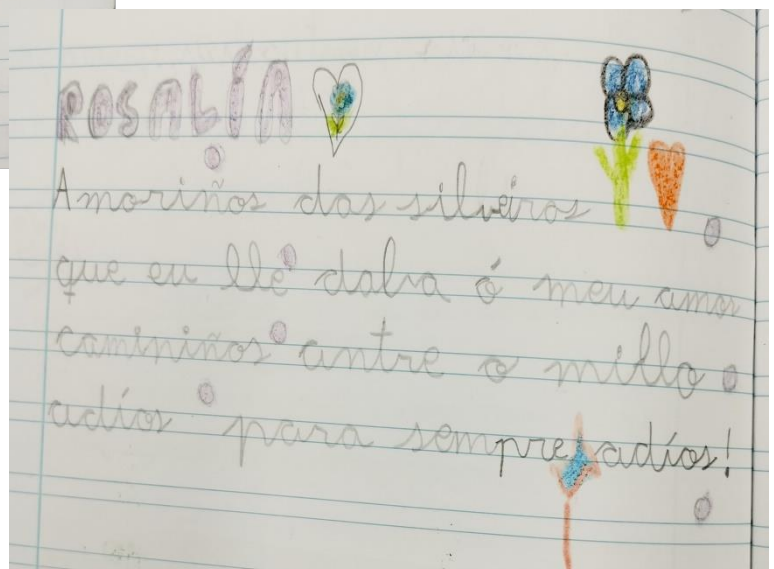 ROSALÍA
Amoriños das silveiras
que eu lle daba ó meu amor
caminiños antre o millo
adíos para sempre adíos!